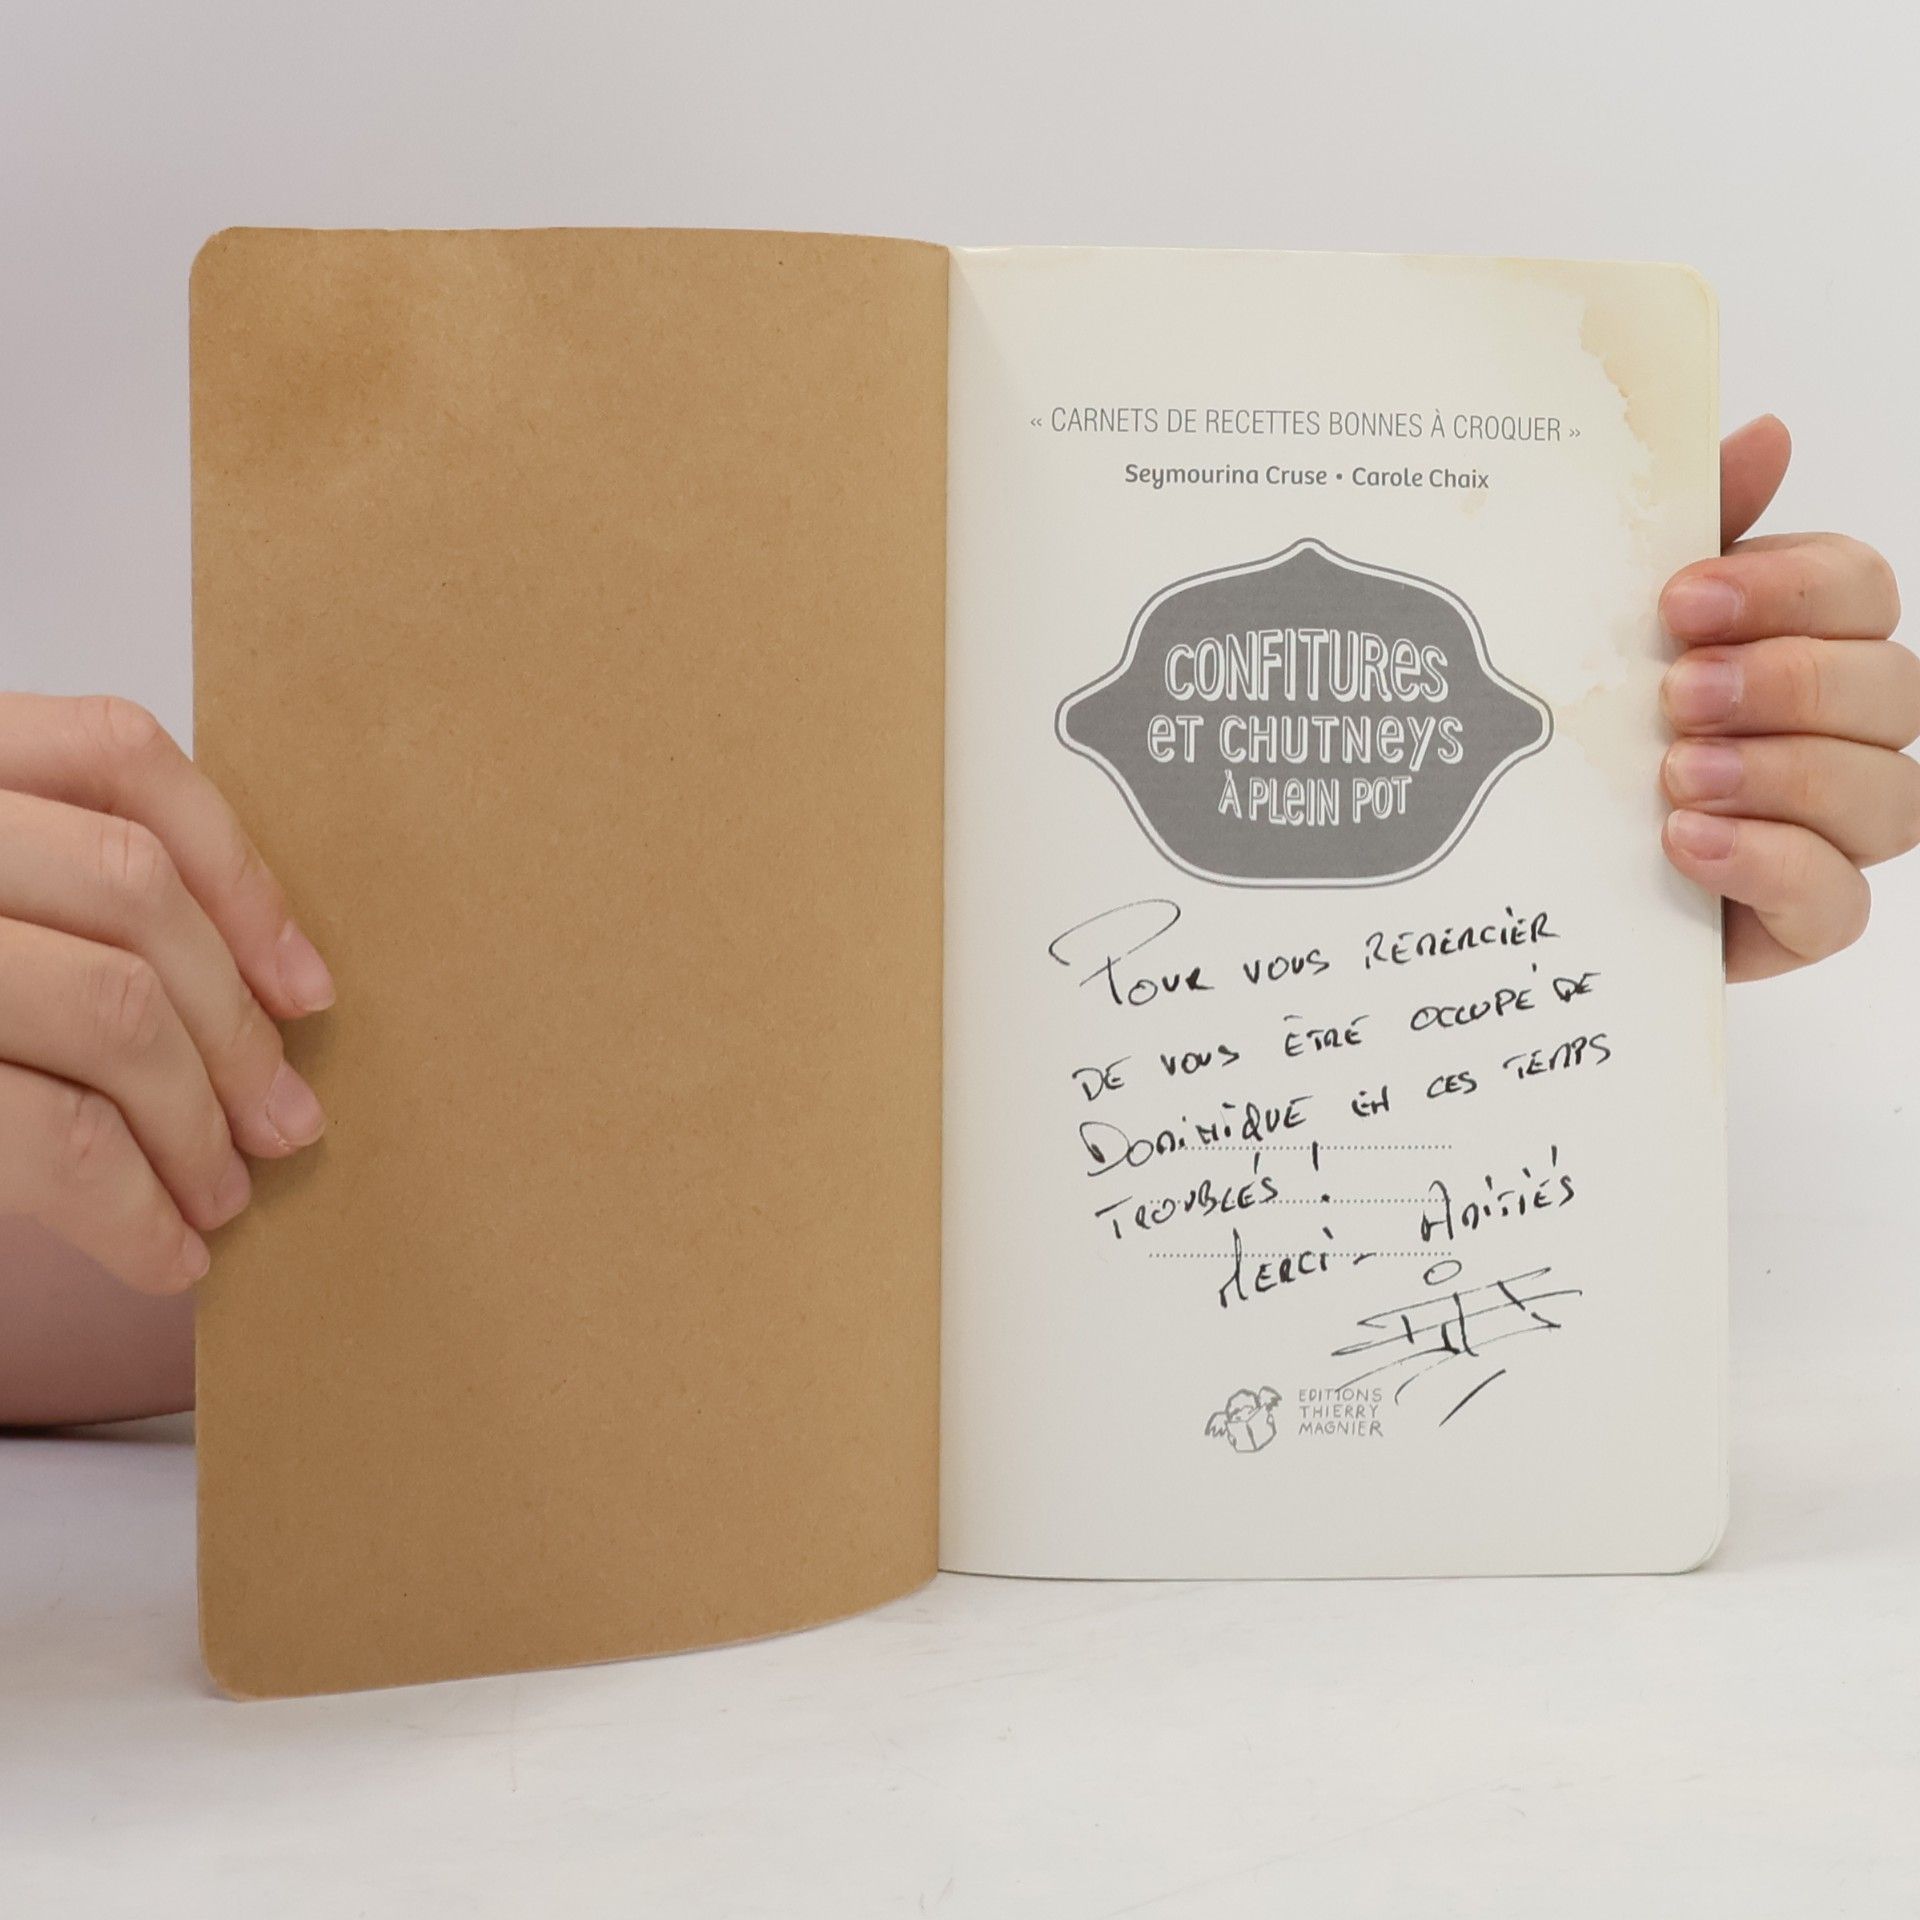 « CARNETS DE RECETTES BONNES À CROQUER »
Seymourina Cruse • Carole Chaix
CONFITURES
ET CHUTNEYS
À PLEIN POT
POUR VOUS REMERCIER
DE VOUS ÊTRE OCCUPÉ DE
DOMINIQUE EN CES TEMPS
TROUBLÉS !
MERCI - AMITIÉS
EDITIONS
THIERRY
MAGNIER